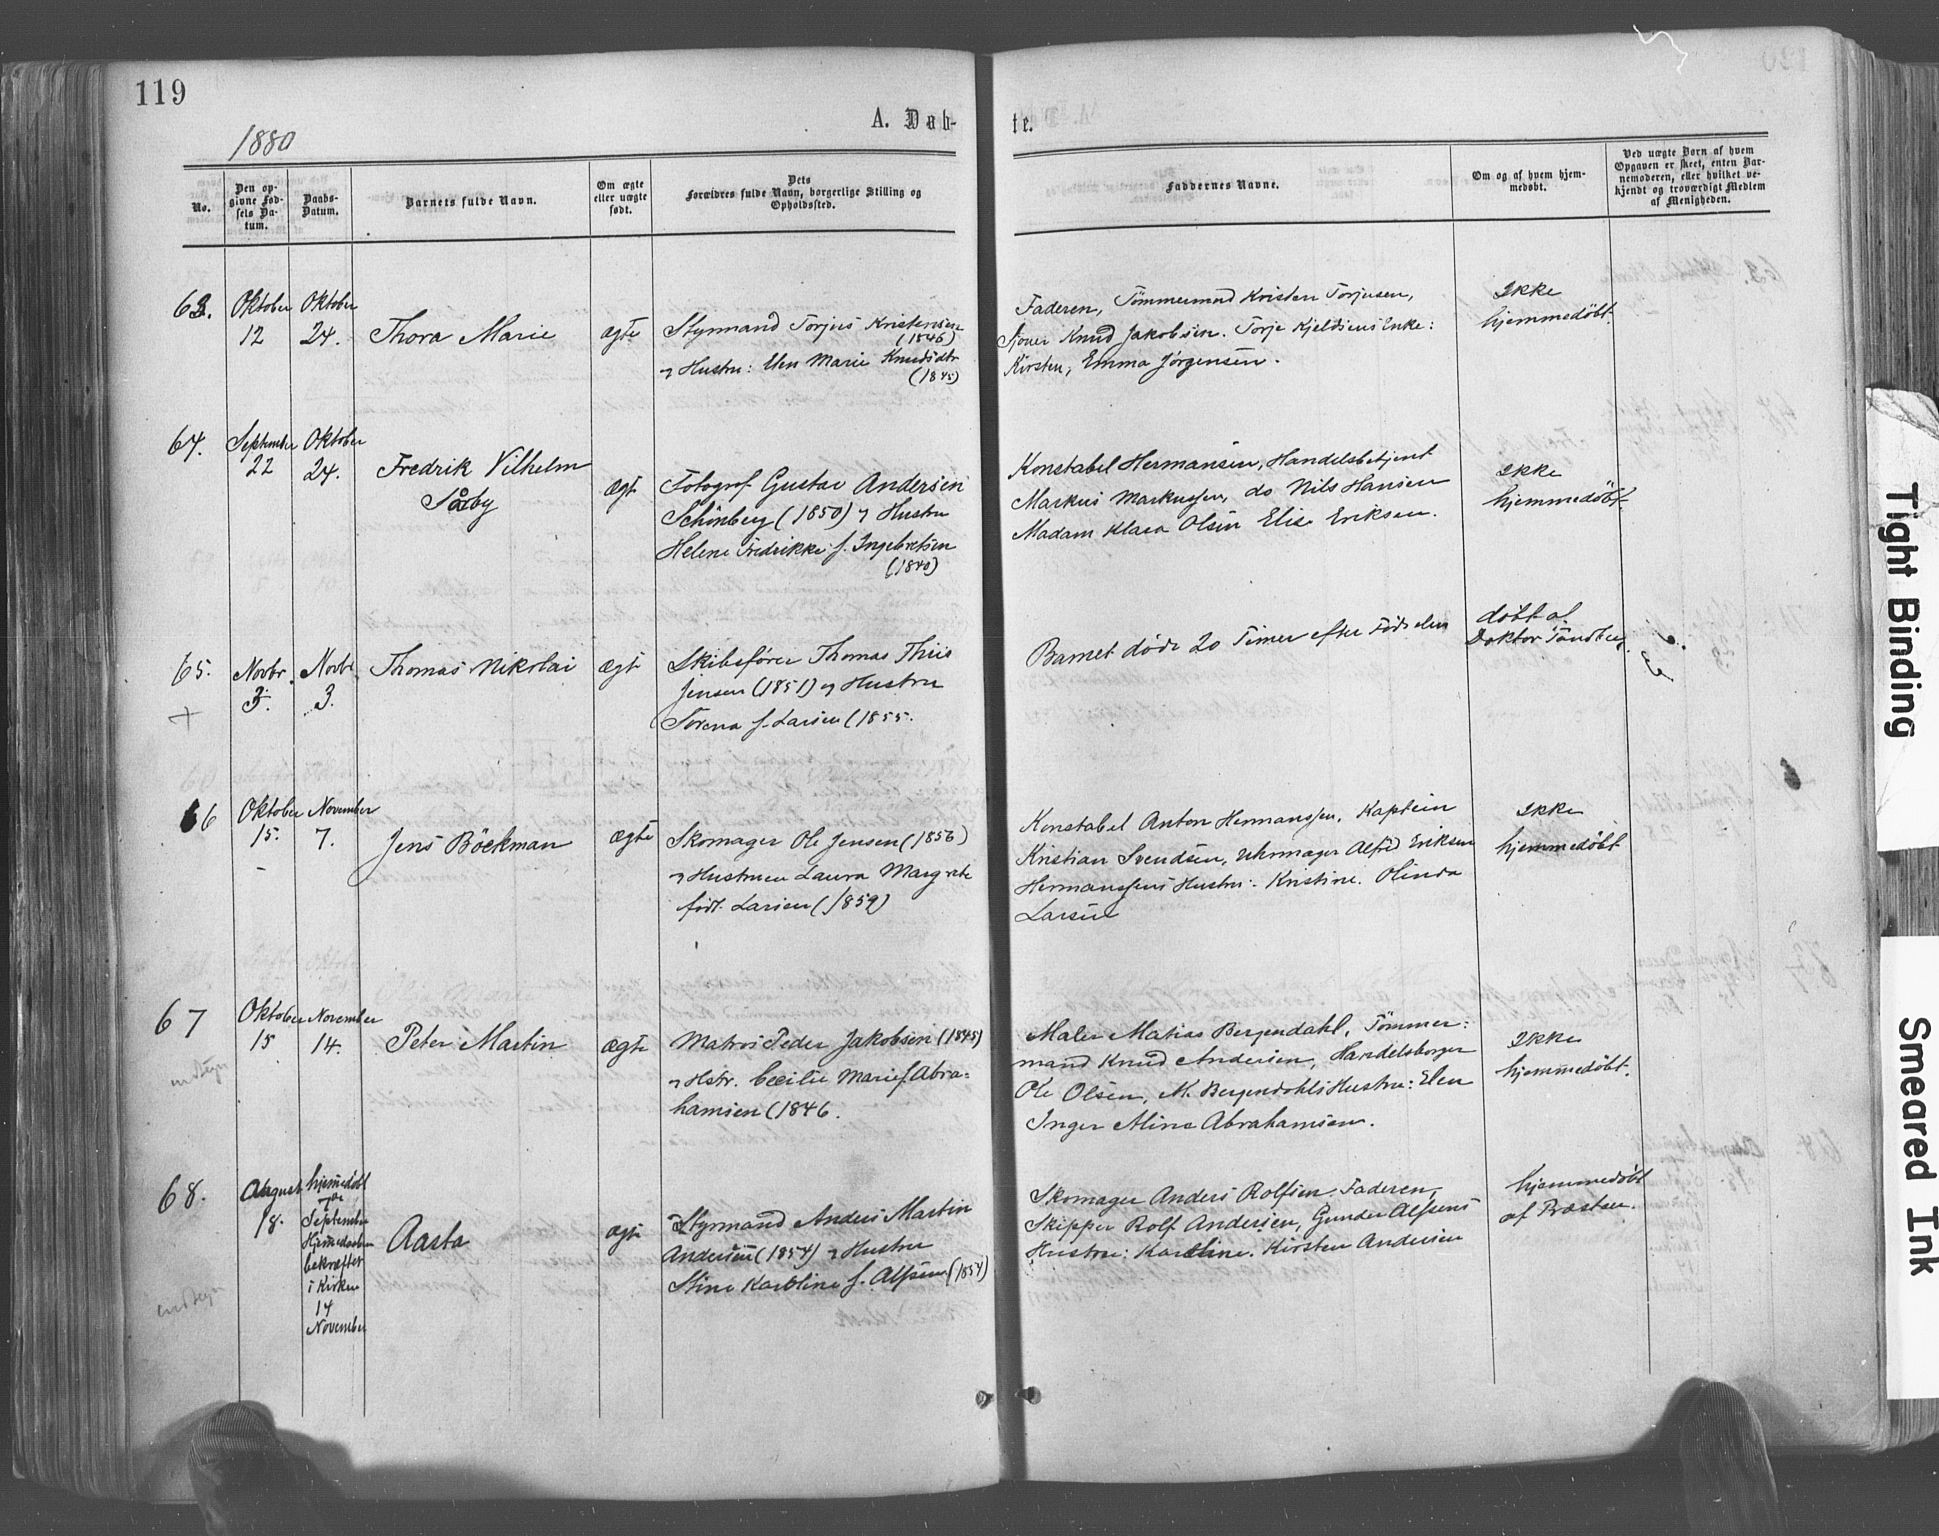 119
1880
A. Døb-
te.
No.
Den op-
givne Fød-
sels Da-
tum.
Daabs-
Datum.
Barnets fulde Navn.
Om ægte
eller uægte
født.
Dets
Forældres fulde Navn, borgerlige Stilling og
Opholdssted.
Faddernes Navne.
Om og af hvem hjem-
medøbt.
Ved uægte Børn af hvem
Opgaven er skeet, enten Bar-
nemoderen, eller hvilket be-
kjendt og troværdigt Medlem
af Menigheden.
63.
Oktober
12
Oktober
24.
Thora Marie
ægte
Styrmand Torjus Kristensen
(1846)
Hustru: Marie Knudsdtr
(1845)
Faderen, Tømmermand Kristen Torjusen,
Knud Jakobsen. Torje Kjeldsens Enke:
Kirsten, Emma Jørgensen.
Ikke
hjemmedøbt.
64.
September
22
Oktober
24.
Fredrik Vilhelm
Sørby
ægt
Fotograf Gustav Andersen
Schönberg (1850) og Hustru
Helene Fredrikke f. Ingebretsen
(1840)
Konstabel Hermansen, Handelsbetjent
Markus Markussen, do Nils Hansen
Madam Klara Olsen Elise Eriksen.
Ikke
hjemmedøbt.
65.
Novbr.
3.
Novbr
3.
Thomas Nikolai
ægt
Skibsfører Thomas Thiis
Jensen (1851) og Hustru
Torena f. Larsen (1855.
Barnet døde 20 Timer efter Fødselen
døbt af
Doktor Tandberg
66
Oktober
15.
November
7.
Jens Böckman
ægte
Skomager Ole Jensen (1856)
og Hustruen Laura Margrete
født. Larsen (1859)
Konstabel Anton Hermanssen, Kaptein
Kristian Svendsen, Uhrmager Alfred Eriksen
Hermanssens Hustru: Kristine. Olinda
Larsen
Ikke
hjemmedøbt
67
Oktober
15
November
14.
Peter Martin
ægte
Matros Peder Jakobsen (1845)
og Hstr. Cecilie Marie f. Abra=
hamsen (1846.
Maler Matias Bergendahl, Tømmer:
mand Knud Andersen, Handelsborger
Ole Olsen, M. Bergendahls Hustru: Elen
Inger Aline Abrahamsen.
Ikke
hjemmedøbt.
68.
August
18.
hjemedøbt
7de
September
Hjemedaaben
bekræftet
i Kirken
14
November
Aasta
ægte
Styrmand Anders Martin
Andersen (1854) og Hustru
Stine Karoline f. Alfsen (1854)
Skomager Anders Rolfsen. Faderen,
Skipper Rolf Andersen, Gunder Alfsens
Hustru: Karoline. Kirsten Andersen
hjemmedøbt
af Præsten.
Tight Binding
Smeared Ink